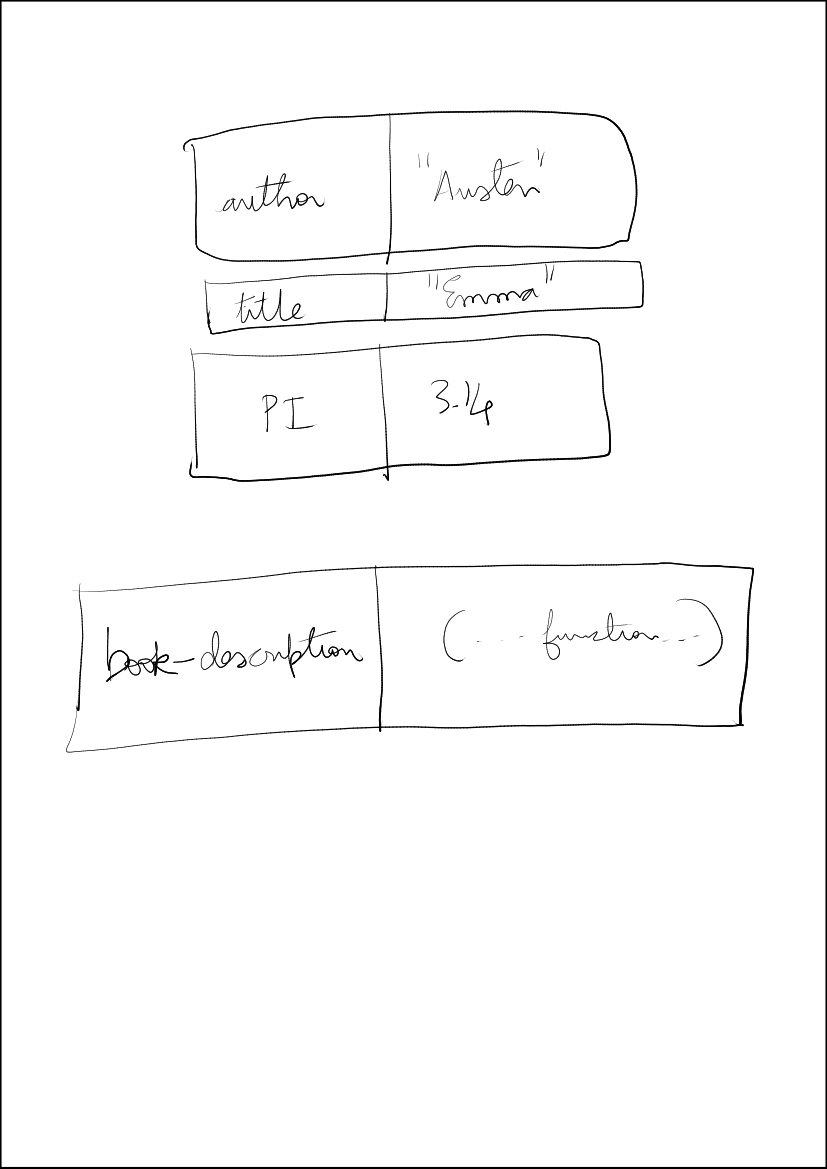 author "Austen"
title "Emma"
PI 3.14
book-description (... function...)